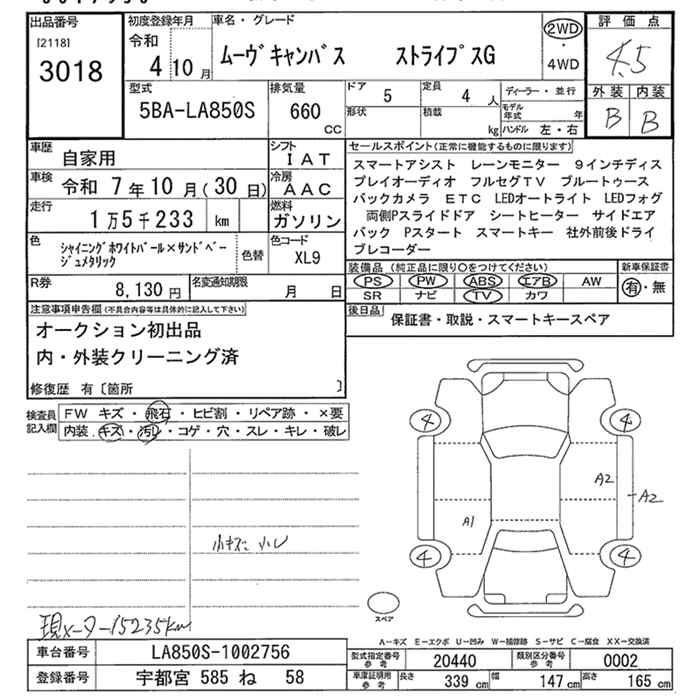 出品番号
[2118]
3018
初度登録年月
令和
4 10 月
車名・グレード
ムーヴキャンバス ストライプスG
2WD
・
4WD
評価点
4.5
外装 内装
B B
型式
5BA-LA850S
排気量
660
CC
ドア
5
定員
4 人
ディーラー・並行
形状
積載
kg
モデル年式 年
ハンドル 左・右
車歴
自家用
シフト
IAT
車検
令和 7年10月(30日)
冷房
AAC
走行
1万5千233 km
燃料
ガソリン
色
シャイニングホワイトパール×サンドベージュメタリック
色替
色コード
XL9
R券
8,130 円
名変通知期限
月 日
セールスポイント(正常に機能するものに限ります)
スマートアシスト レーンモニター 9インチディス
プレイオーディオ フルセグTV ブルートゥース
バックカメラ ETC LEDオートライト LEDフォグ
両側Pスライドドア シートヒーター サイドエア
バック Pスタート スマートキー 社外前後ドライ
ブレコーダー
装備品(純正品に限り○をつけてください)
新車保証書
PS PW ABS エアB AW
SR ナビ TV カワ
有・無
後日品
保証書・取説・スマートキースペア
注意事項申告欄(不具合内容等は具体的に記入して下さい)
オークション初出品
内・外装クリーニング済
修復歴 有〔箇所 〕
検査員
記入欄
FW キズ・飛石・ヒビ割・リペア跡・×要
内装.キズ・汚レ・コゲ・穴・スレ・キレ・破レ
小キズ 小レ
現メーター15235km
4
4
A2
A2
A1
4
4
スペア
A-キズ E-エクボ U-凹み W-補修跡 S-サビ C-腐食 XX-交換済
車台番号
LA850S-1002756
登録番号
宇都宮 585 ね 58
型式指定番号
参考
20440
類別区分番号
参考
0002
車庫証明用
参考
長さ
339 cm
幅
147 cm
高さ
165 cm